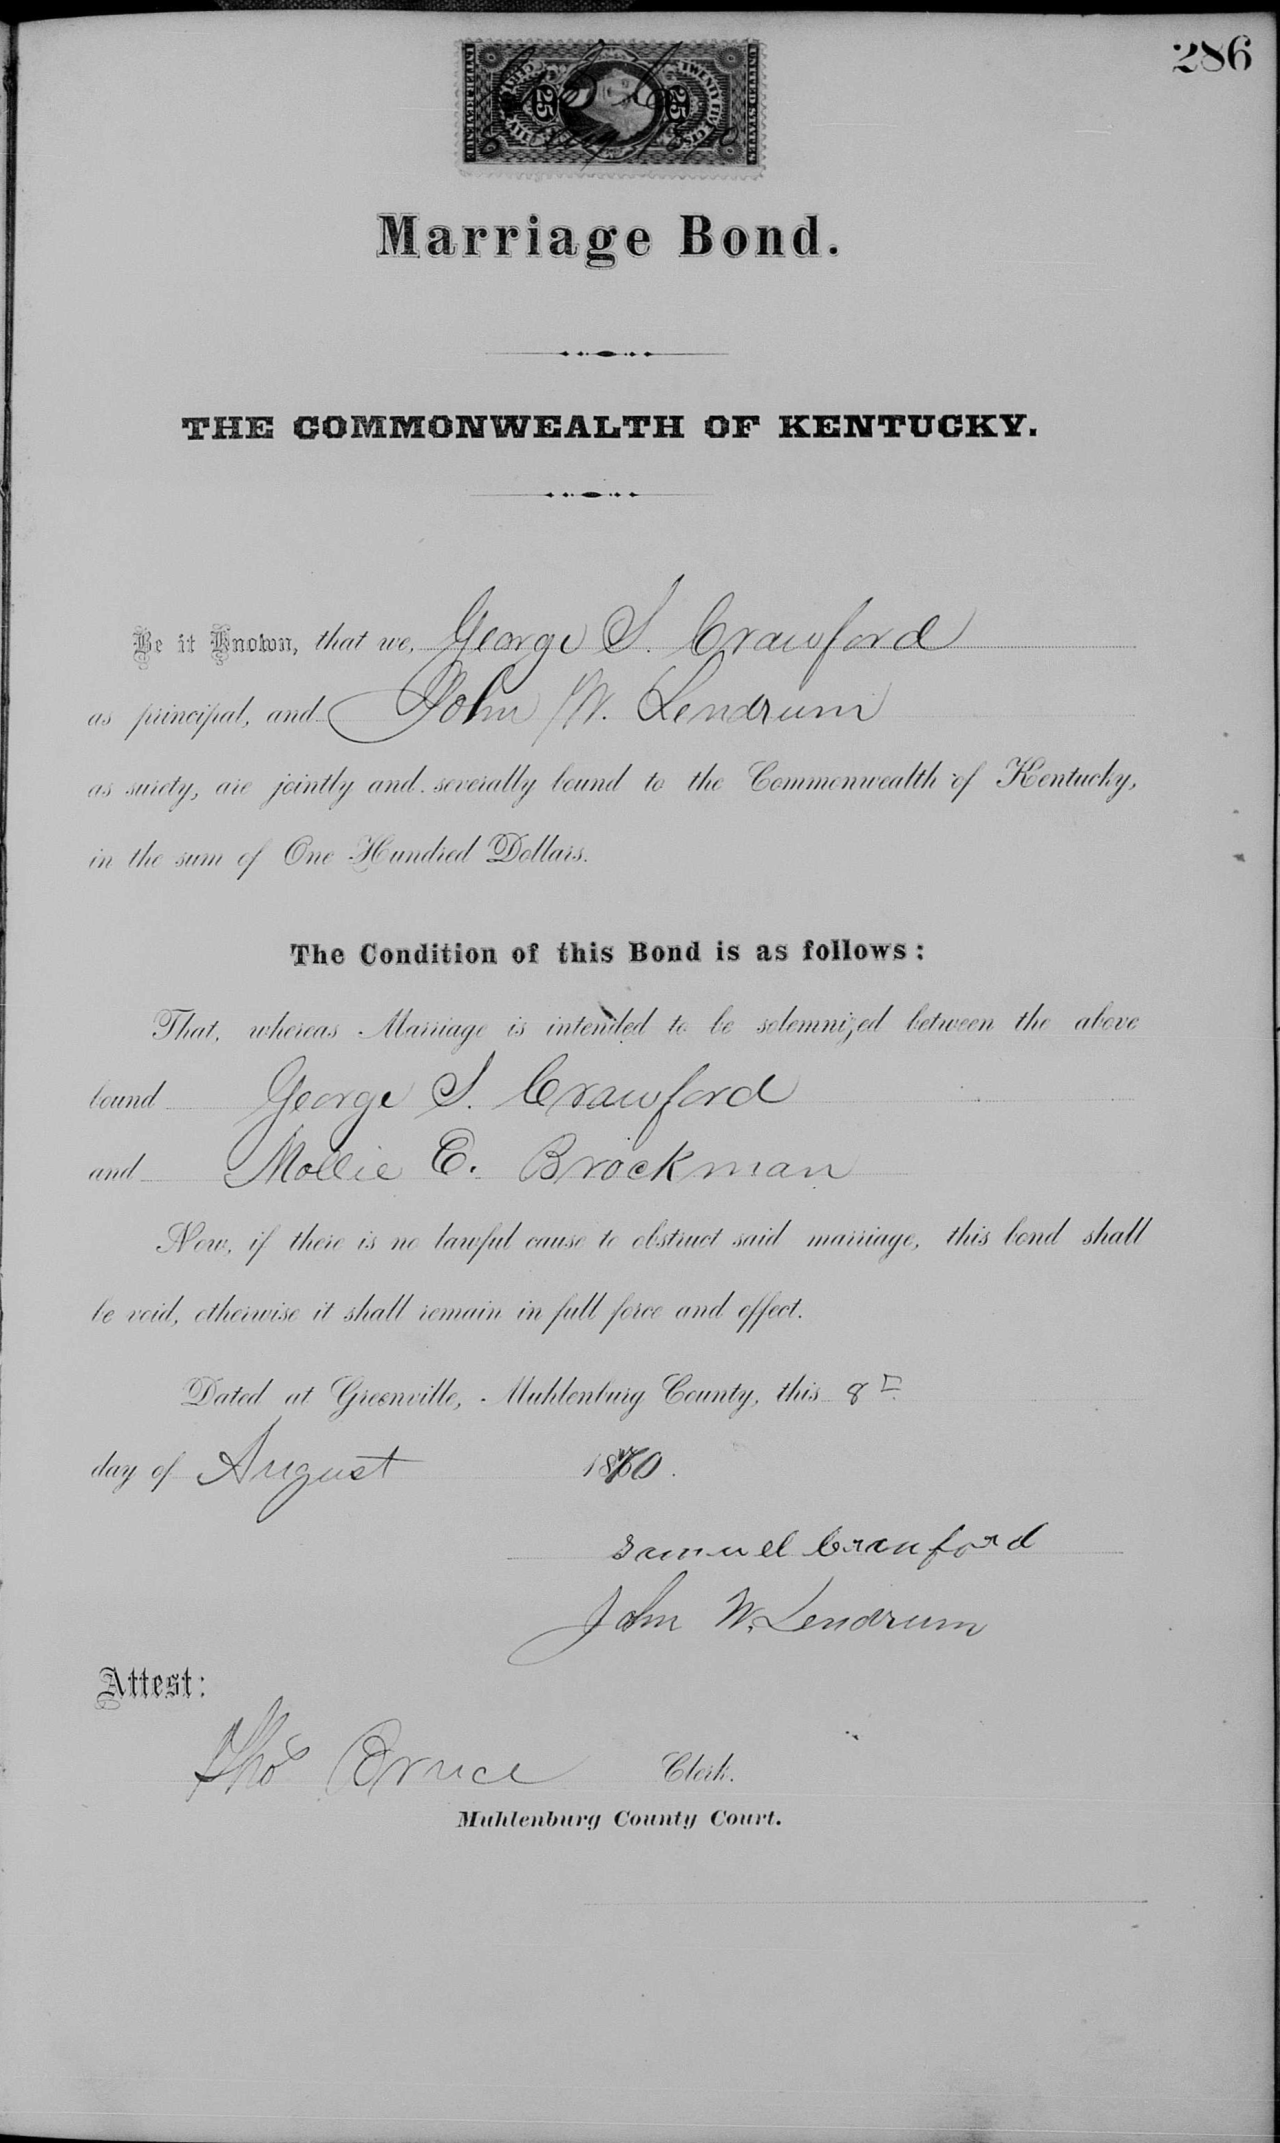 286
UNITED STATES
INTER. REVENUE
TWENTY FIVE CTS.
25 25
Marriage Bond.
THE COMMONWEALTH OF KENTUCKY.
Be it Known, that we, George S. Crawford
as principal, and John W. Lendrum
as surety, are jointly and severally bound to the Commonwealth of Kentucky,
in the sum of One Hundred Dollars.
The Condition of this Bond is as follows:
That, whereas Marriage is intended to be solemnized between the above
bound George S. Crawford
and Mollie E. Brockman
Now, if there is no lawful cause to obstruct said marriage, this bond shall
be void, otherwise it shall remain in full force and effect.
Dated at Greenville, Muhlenburg County, this 8th
day of August 1870.
Samuel Crauford
John W. Lendrum
Attest:
Thos Bruce Clerk.
Muhlenburg County Court.